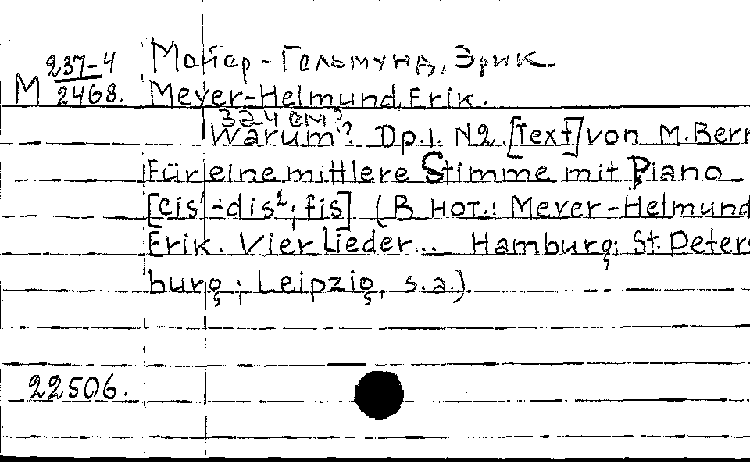 237-4 Мойер-Гельмунд, Эрик.
М 2468. Meyer-Helmund, Erik.
Warum? Op.1. N2. [Text] von M. Bern
Für eine mittlere Stimme mit Piano
[cis¹-dis²; fis] (В нот.: Meyer-Helmund
Erik. Vier Lieder... Hamburg; St. Peters
burg; Leipzig, s.a.).
22506.